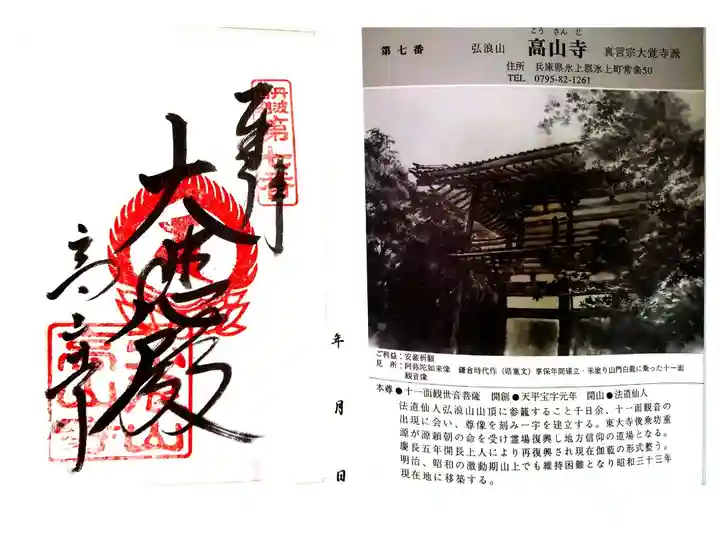 奉
丹波
第七番
大悲殿
高山寺
年
月
日
こうさんじ
第七番 弘浪山 高山寺 真言宗大覚寺派
住所 兵庫県氷上郡氷上町常楽50
TEL 0795-82-1261
ご利益：安産祈願
見 所：阿弥陀如来像 鎌倉時代作（県重文）享保年間建立・朱塗り山門白龍に乗った十一面
観音像
本尊●十一面観世音菩薩 開創●天平宝字元年 開山●法道仙人
法道仙人弘浪山山頂に参籠すること千日余、十一面観音の
出現に会い、尊像を刻み一宇を建立する。東大寺俊乗坊重
源が源頼朝の命を受け霊場復興し地方信仰の道場となる。
慶長五年開長上人により再復興され現在伽藍の形式整う。
明治、昭和の激動期山上でも維持困難となり昭和三十三年
現在地に移築する。